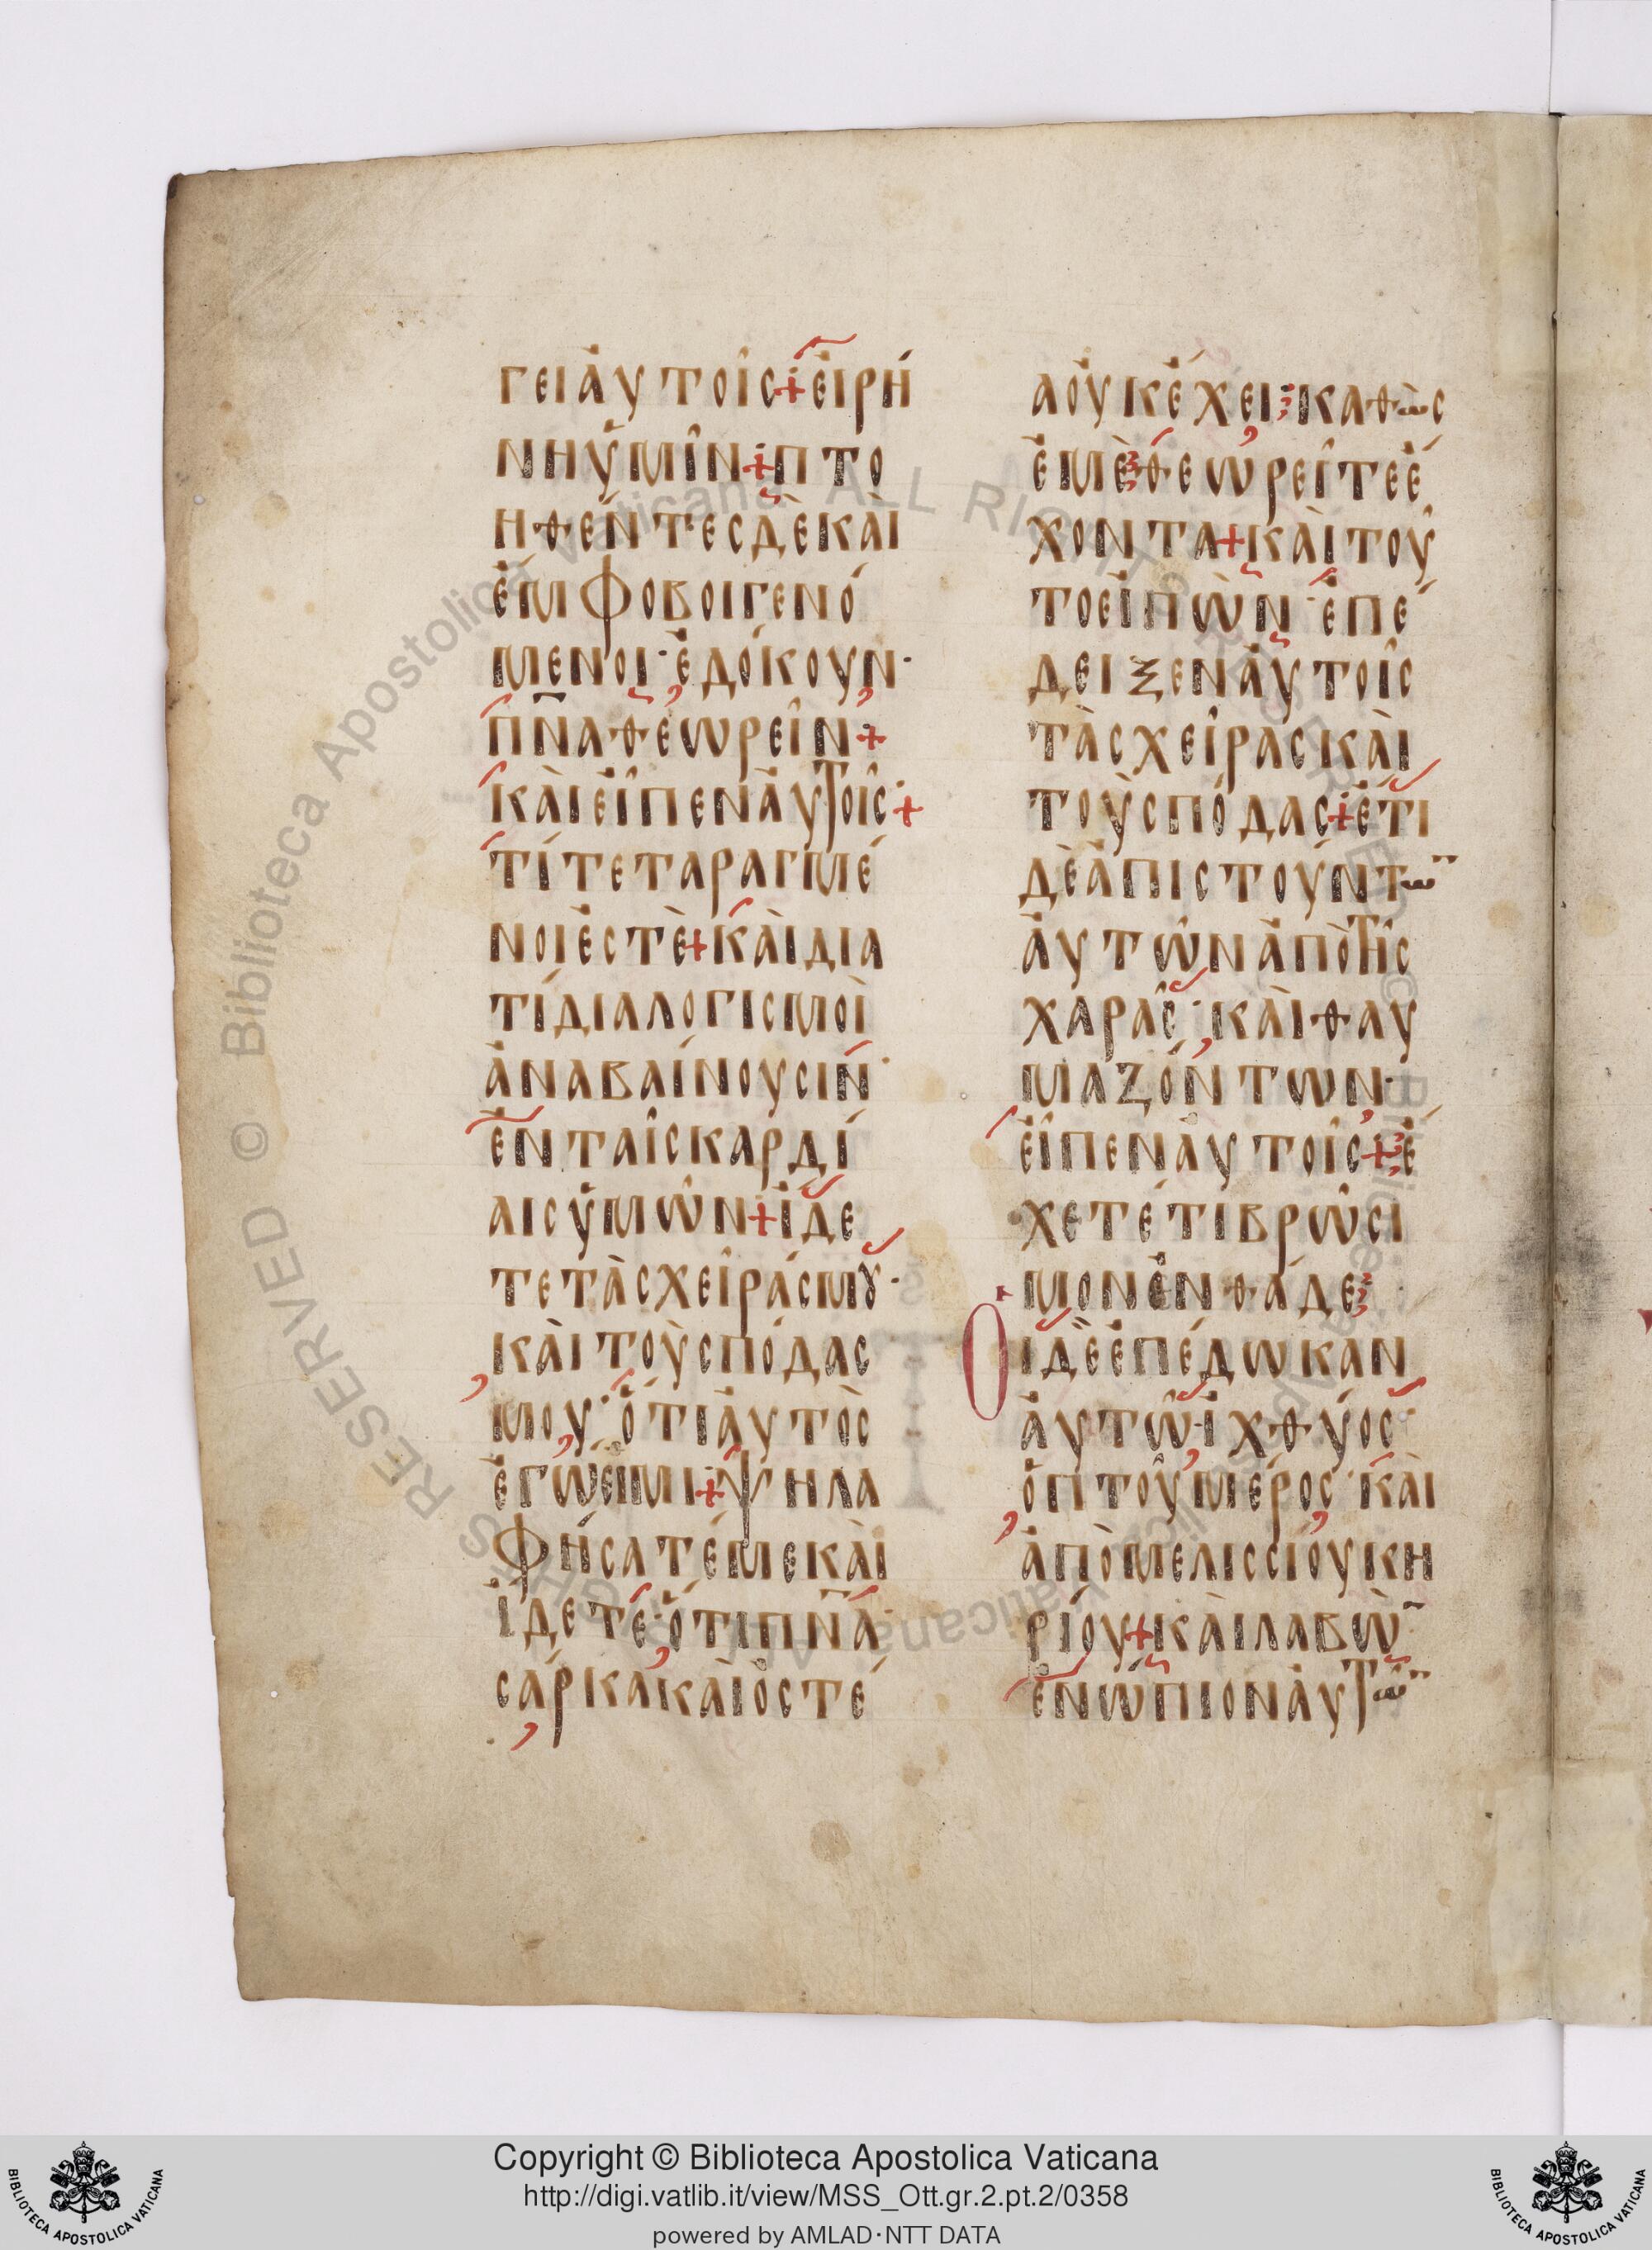 ΓΕΙ ἀΥΤΟῖC + ΕἰΡΉ
ΝΗ ὑΜῖΝ + ΠΤΟ
ΗΘΈΝΤΕC ΔῈ ΚΑῚ
ἔΜΦΟΒΟΙ ΓΕΝΌ
ΜΕΝΟΙ · ἐΔΌΚΟΥΝ ·
Π̅Ν̅Α ΘΕΩΡΕῖΝ +
ΚΑῚ ΕἶΠΕΝ ἀΥΤΟῖC · +
ΤΊ ΤΕΤΑΡΑΓΜΈ
ΝΟΙ ἐCΤῈ + ΚΑῚ ΔΙΑ
ΤΊ ΔΙΑΛΟΓΙCΜΟῚ
ἀΝΑΒΑΊΝΟΥCΙΝ ·
ἐΝ ΤΑῖC ΚΑΡΔΊ
ΑΙC ὑΜῶΝ + ἴΔΕ
ΤΕ ΤᾺC ΧΕῖΡΆC ΜȢ ·
ΚΑῚ ΤΟῪC ΠΌΔΑC
ΜΟΥ · ὅΤΙ ἀΥΤῸC
ἐΓΏ ΕἰΜΙ + ΨΗΛΑ
ΦΉCΑΤΈ ΜΕ ΚΑῚ
ἴΔΕΤΕ · ὅΤΙ Π̅Ν̅Α ·
CΆΡΚΑ ΚΑῚ ὀCΤΈ
Α ΟὐΚ ἔΧΕΙ ΚΑΘῺC
ἐΜῈ ΘΕΩΡΕῖΤΕ ἔ
ΧΟΝΤΑ + ΚΑῚ ΤΟῦ
ΤΟ ΕἰΠῺΝ · ἐΠΈ
ΔΕΙΞΕΝ ἀΥΤΟῖC
ΤᾺC ΧΕῖΡΑC ΚΑῚ
ΤΟῪC ΠΌΔΑC + ἔΤΙ
ΔῈ ἀΠΙCΤΟΎΝΤΩ̅
ἀΥΤῶΝ ἀΠῸ ΤῆC
ΧΑΡᾶC · ΚΑῚ ΘΑΥ
ΜΑΖΌΝΤΩΝ ·
ΕἶΠΕΝ ἀΥΤΟῖC + ἔ
ΧΕΤΈ ΤΙ ΒΡΏCΙ
ΜΟΝ ἐΝΘΆΔΕ
ΟΙ ΔῈ ἐΠΈΔΩΚΑΝ
ἀΥΤῶ ἰΧΘΎΟC ·
ὀΠΤΟῦ ΜΈΡΟC · ΚΑῚ
ἀΠῸ ΜΕΛΙCCΊΟΥ ΚΗ
ΡΊΟΥ + ΚΑῚ ΛΑΒῺ̅
ἐΝΏΠΙΟΝ ἀΥΤῶ̅
Copyright © Biblioteca Apostolica Vaticana
http://digi.vatlib.it/view/MSS_Ott.gr.2.pt.2/0358
powered by AMLAD·NTT DATA
BIBLIOTECA APOSTOLICA VATICANA
BIBLIOTECA APOSTOLICA VATICANA
© Biblioteca Apostolica Vaticana ALL RIGHTS RESERVED